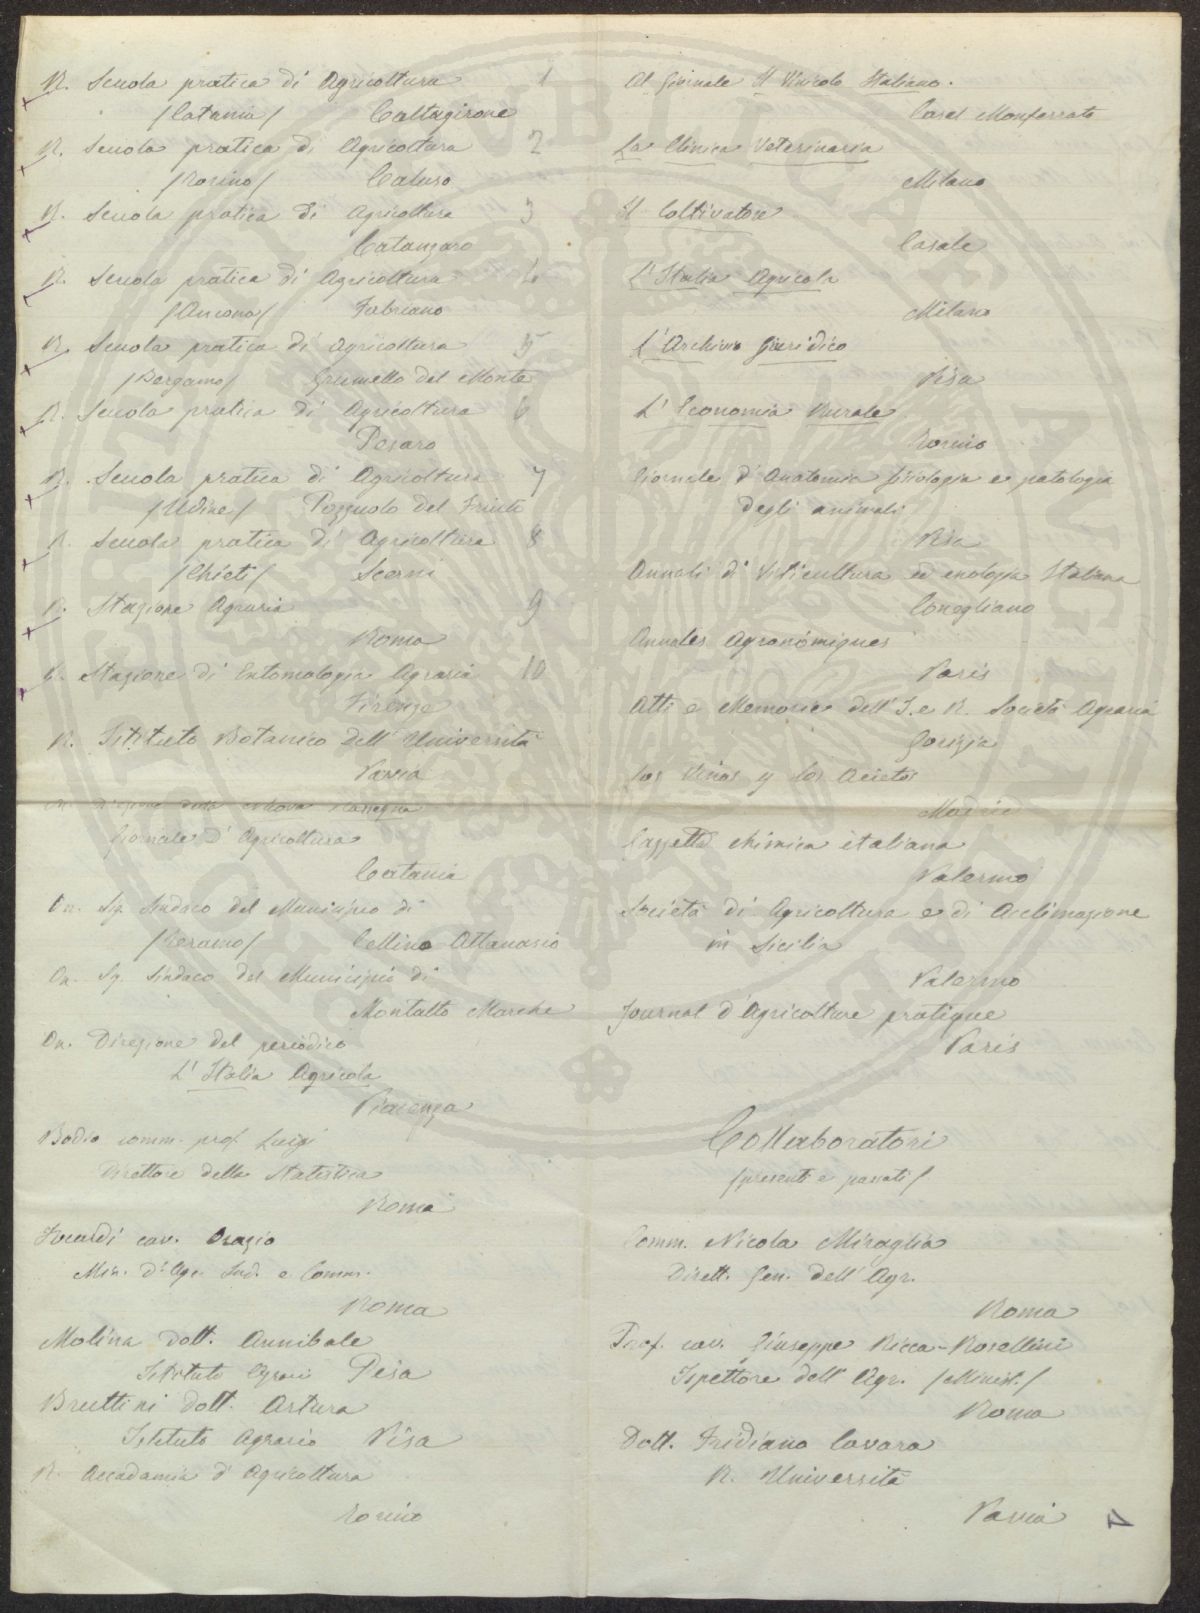 R. Scuola pratica di Agricoltura 1
/Catania/ Caltagirone
R. Scuola pratica di Agricoltura 2
/Torino/ Caluso
R. Scuola pratica di Agricoltura 3
Catanzaro
R. Scuola pratica di Agricoltura 4
/Ancona/ Fabriano
R. Scuola pratica di Agricoltura 5
/Bergamo/ Grumello del Monte
R. Scuola pratica di Agricoltura 6
Pesaro
R. Scuola pratica di Agricoltura 7
/Udine/ Pozzuolo del Friuli
R. Scuola pratica di Agricoltura 8
/Chieti/ Scerni
R. Stazione Agraria 9
Roma
R. Stazione di Entomologia Agraria 10
Firenze
R. Istituto Botanico dell' Università
Pavia
On. Direzione della Nuova Rassegna
Giornale d' Agricoltura
Catania
On. Sig. Sindaco del Municipio di
/Teramo/ Cellino Attanasio
On. Sig. Sindaco del Municipio di
Montalto Marche
On. Direzione del periodico
L' Italia Agricola
Piacenza
Bodio comm. prof. Luigi
Direttore della Statistica
Roma
Focardi cav. Orazio
Min. d'Agr. Ind. e Comm.
Roma
Molina dott. Annibale
Istituto Agrari Pisa
Bruttini dott. Arturo
Istituto Agrario Pisa
R. Accadamia d' Agricoltura
Torino
Al Giornale Il Vinicolo Italiano.
Casal Monferrato
La Clinica Veterinaria
Milano
Il Coltivatore
Casale
L'Italia Agricola
Milano
L'Archivio Giuridico
Pisa
L' Economia Rurale
Torino
Giornale d' Anatomia fisiologia e patologia
degli animali
Pisa
Annali di Viticultura ed enologia Italiana
Conegliano
Annales Agronomiques
Paris
Atti e Memorie dell' I. e R. Società Agraria
Gorizia
Los Vinos y los Aceites
Madrid
Gazzetta chimica italiana
Palermo
Società di Agricoltura e di Acclimazione
in Sicilia
Palermo
Journal d'Agricolture pratique
Paris
Collaboratori
/presenti e passati/
Comm. Nicola Miraglia
Dirett. Gen. dell' Agr.
Roma
Prof. cav. Giuseppe Ricca-Rosellini
Ispettore dell' Agr. /Minist./
Roma
Dott. Fridiano Cavara
R. Università
Pavia